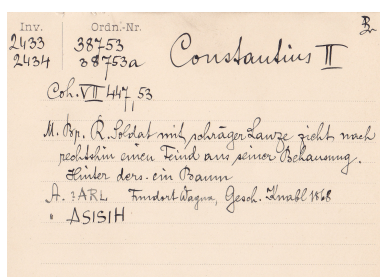 Inv. Ordn.-Nr.
2433 38753 Constantius II
2434 38753a
Coh. VII 447, 53
M. Br. R. Soldat mit schräger Lanze zieht nach
rechtshin einen Feind aus seiner Behausung.
Hinter ders. ein Baum
A. ?ARL Fundort Wagna, Gesch. Knabl 1868
" ΔSISIH